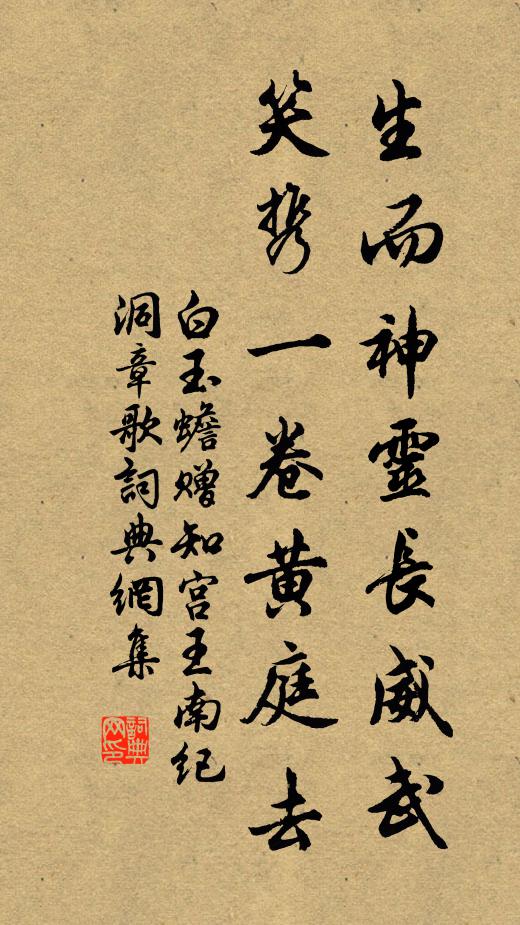 生而神靈長威武
笑携一卷黄庭去
白玉蟾赠知宫王南纪
洞章歌詞典網集
詞典
网印